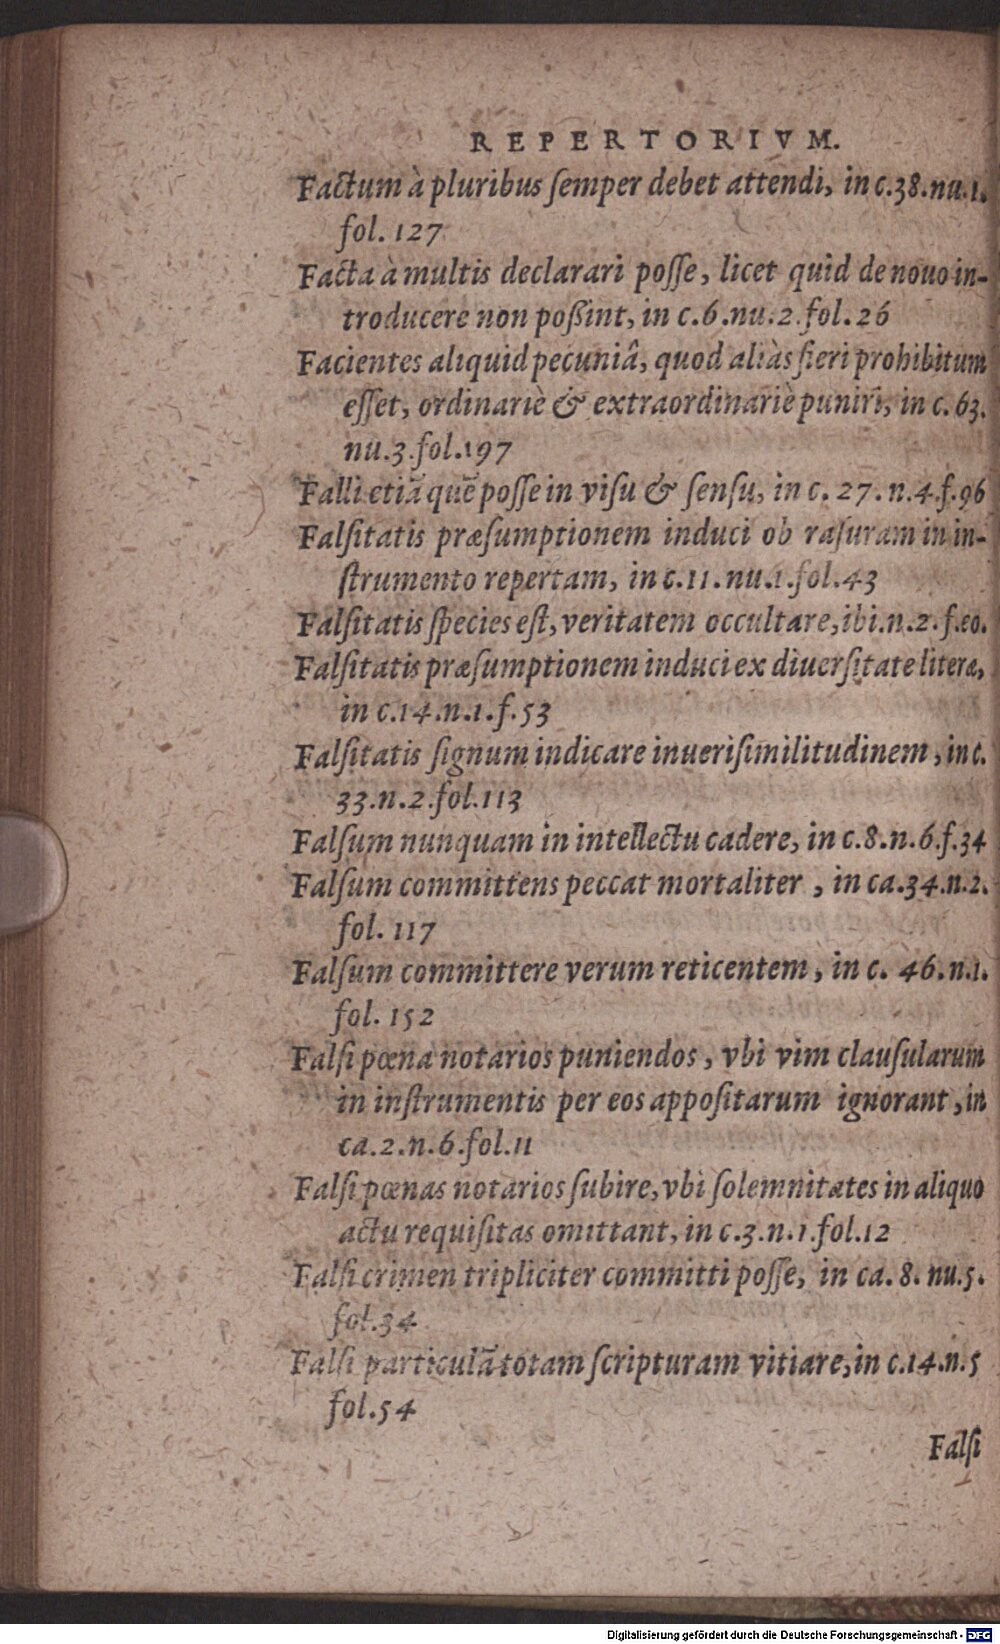 REPERTORIVM.
Factum à pluribus ſemper debet attendi, in c.38.nu.1.
fol. 127
Facta à multis declarari poſſe, licet quid de nouo in-
troducere non poßint, in c.6.nu.2.fol.26
Facientes aliquid pecuniâ, quod aliàs fieri prohibitum
eſſet, ordinariè & extraordinariè puniri, in c. 63.
nu.3.fol.197
Falli etiã quē poſſe in viſu & ſenſu, in c. 27. n.4.f.96
Falſitatis præſumptionem induci ob raſuram in in-
ſtrumento repertam, in c.11.nu.1.fol.43
Falſitatis ſpecies eſt, veritatem occultare, ibi.n.2.f.eo.
Falſitatis præſumptionem induci ex diuerſitate literæ,
in c.14.n.1.f.53
Falſitatis ſignum indicare inueriſimilitudinem, in c.
33.n.2.fol.113
Falſum nunquam in intellectu cadere, in c.8.n.6.f.34
Falſum committens peccat mortaliter, in ca.34.n.2.
fol. 117
Falſum committere verum reticentem, in c. 46.n.1.
fol. 152
Falſi pœna notarios puniendos, vbi vim clauſularum
in inſtrumentis per eos appoſitarum ignorant, in
ca.2.n.6.fol.11
Falſi pœnas notarios ſubire, vbi ſolemnitates in aliquo
actu requiſitas omittant, in c.3.n.1.fol.12
Falſi crimen tripliciter committi poſſe, in ca. 8. nu.5.
fol.34
Falſi particulã totam ſcripturam vitiare, in c.14.n.5
fol.54
Falſi
Digitalisierung gefördert durch die Deutsche Forschungsgemeinschaft - DFG